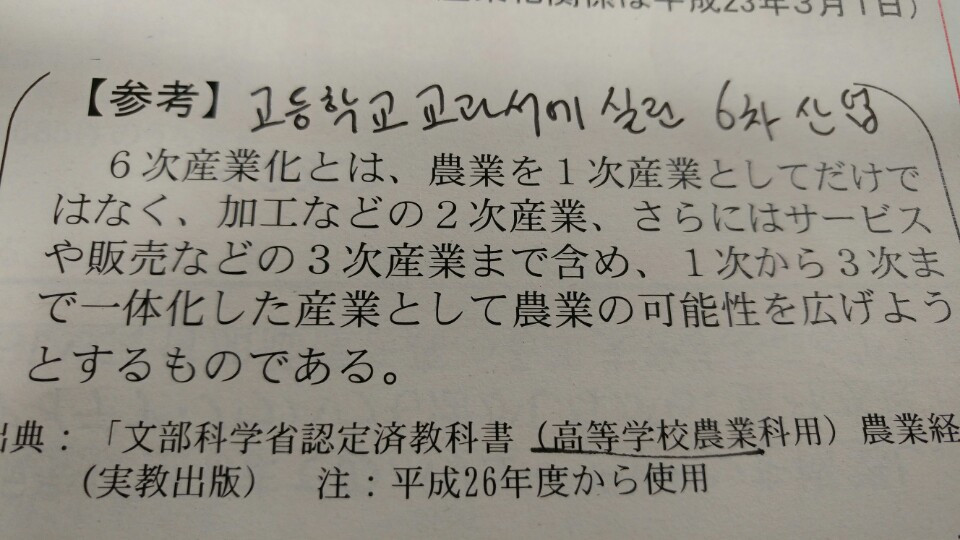 関係は平成23年3月1日）
【参考】 고등학교 교과서에 실린 6차 산업
６次産業化とは、農業を１次産業としてだけで
はなく、加工などの２次産業、さらにはサービス
や販売などの３次産業まで含め、１次から３次ま
で一体化した産業として農業の可能性を広げよう
とするものである。
出典：「文部科学省認定済教科書（高等学校農業科用）農業経
（実教出版）　注：平成26年度から使用